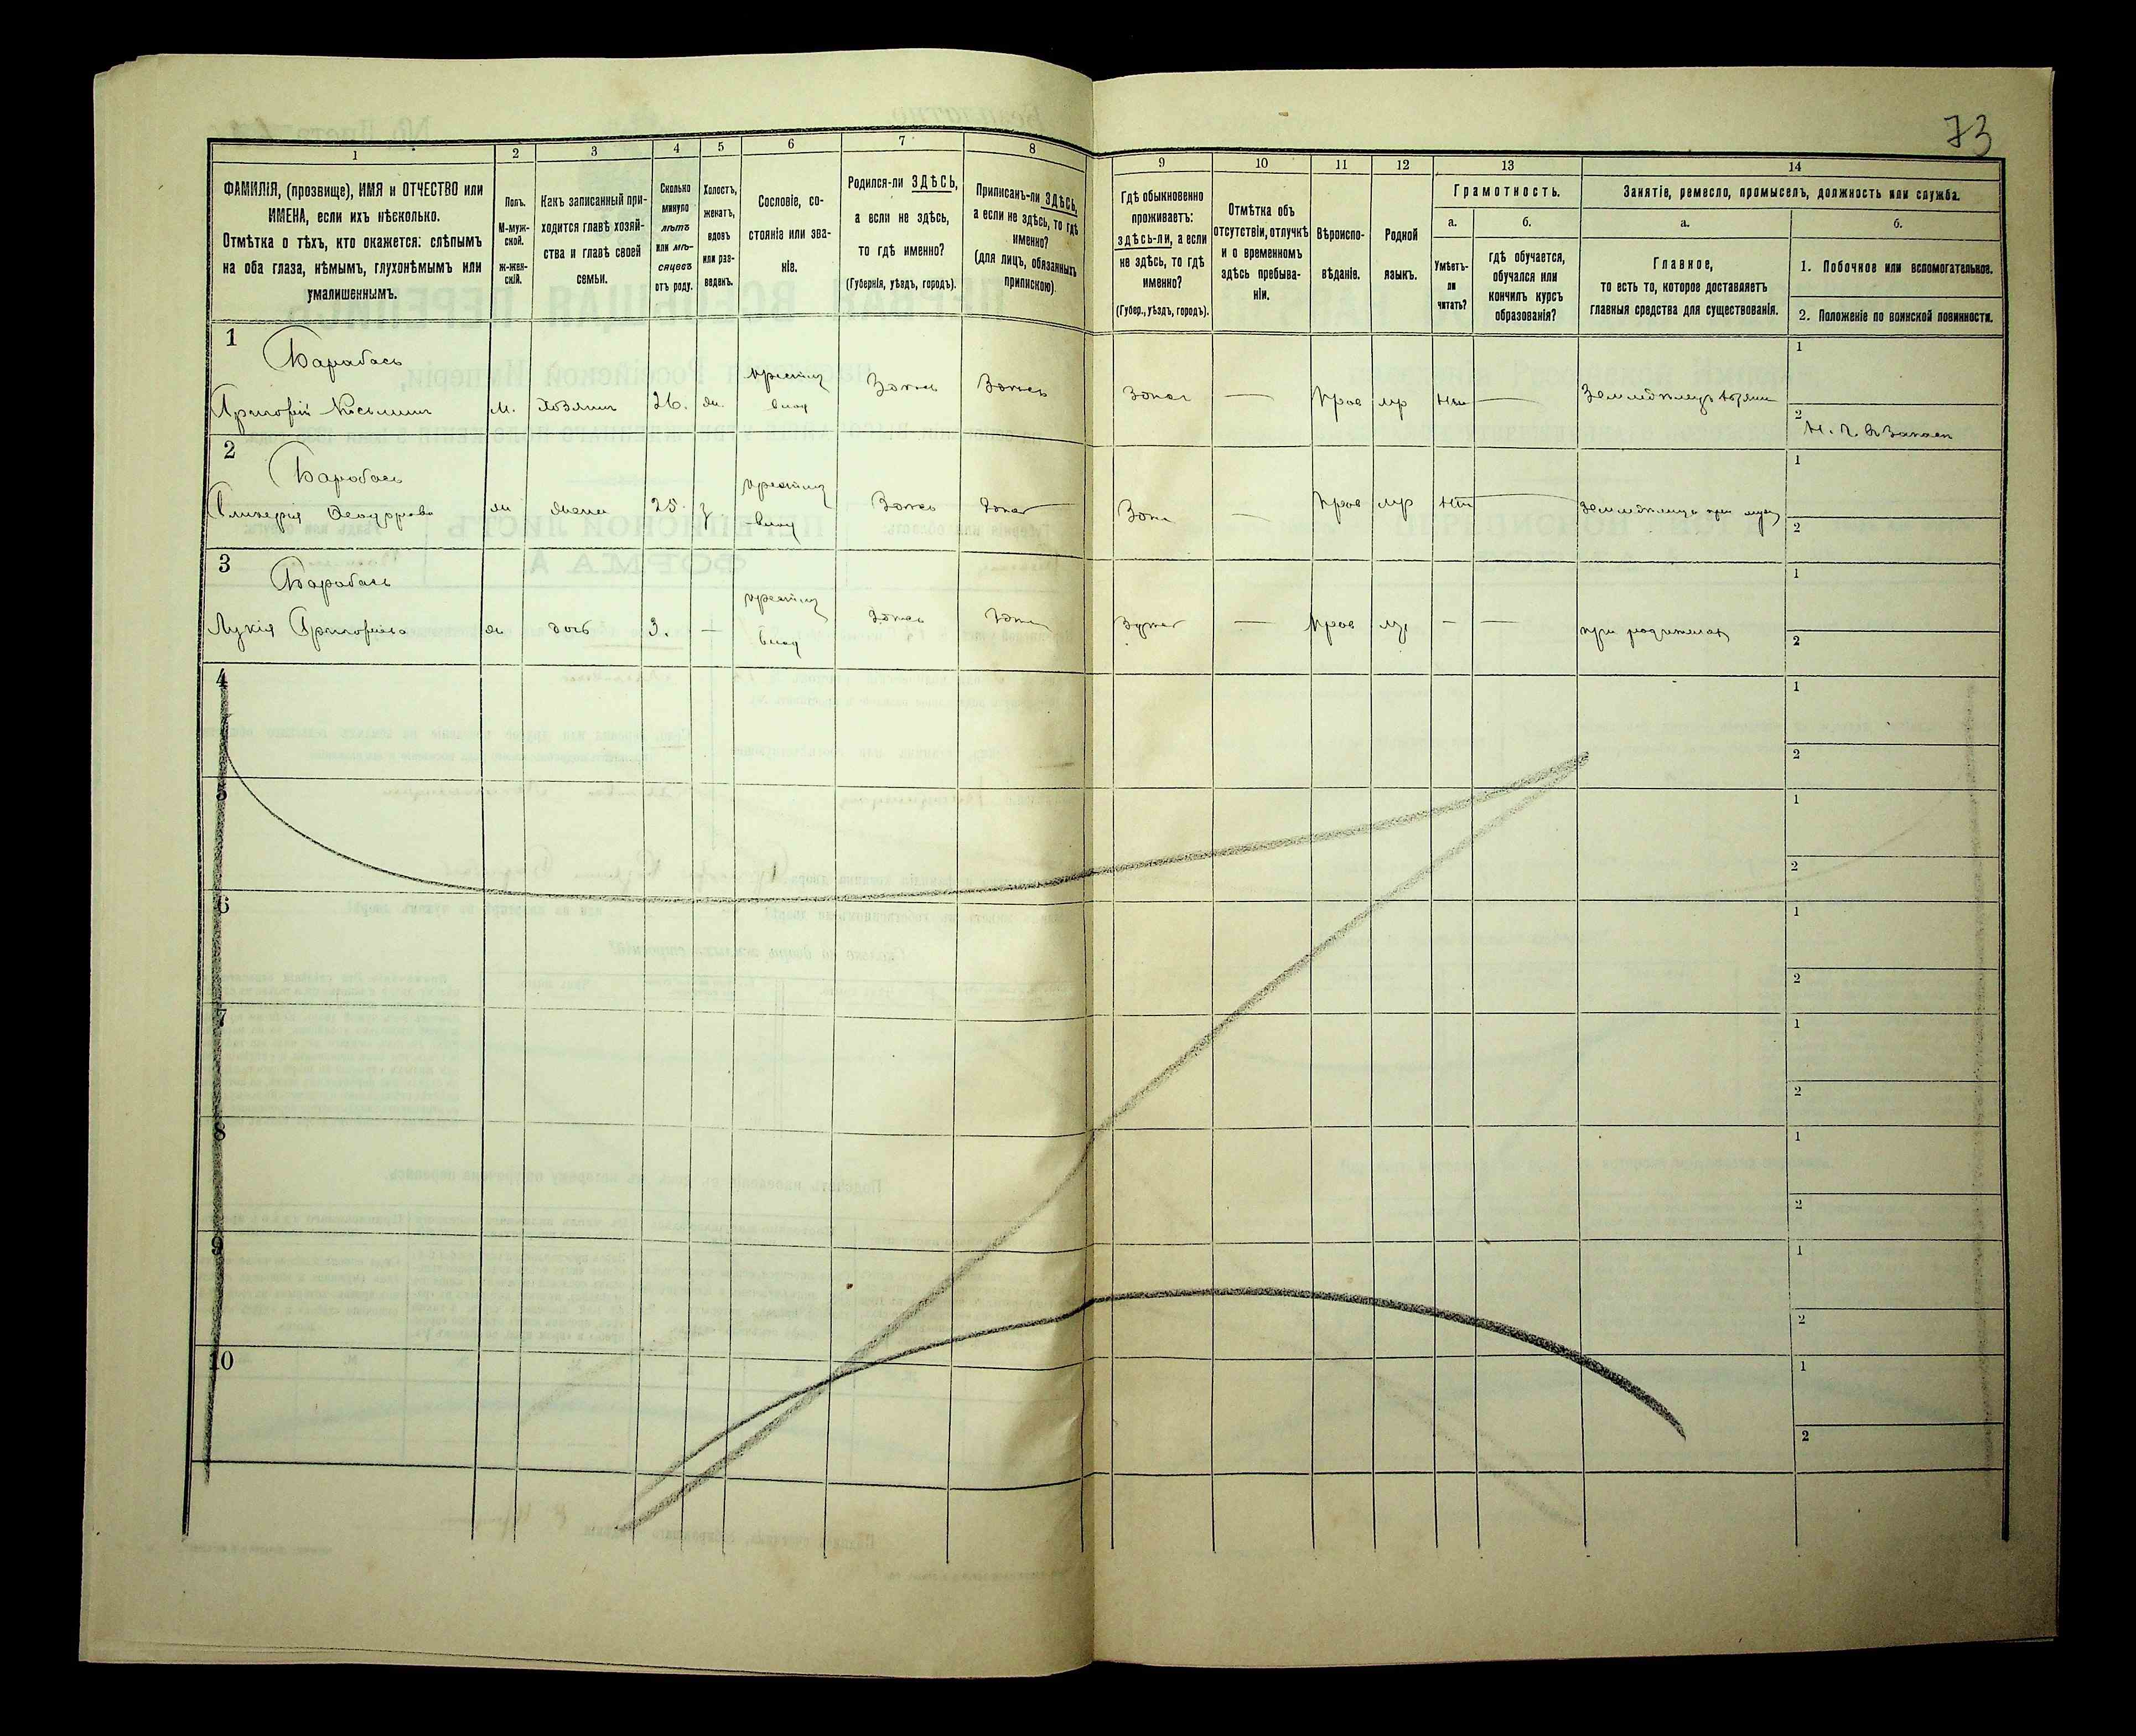 73
1
2
3
4
5
6
7
8
9
10
11
12
13
14
ФАМИЛІЯ, (прозвище), ИМЯ и ОТЧЕСТВО или
ИМЕНА, если ихъ нѣсколько.
Отмѣтка о тѣхъ, кто окажется: слѣпымъ
на оба глаза, нѣмымъ, глухонѣмымъ или
умалишеннымъ.
Полъ.
М-муж-
ской.
Ж-жен-
скій.
Какъ записанный при-
ходится главѣ хозяй-
ства и главѣ своей
семьи.
Сколько
минуло
лѣтъ
или мѣ-
сяцевъ
отъ роду.
Холостъ,
женатъ,
вдовъ
или раз-
веденъ.
Сословіе, со-
стояніе или зва-
ніе.
Родился-ли ЗДѢСЬ,
а если не здѣсь,
то гдѣ именно?
(Губернія, уѣздъ, городъ).
Приписанъ-ли ЗДѢСЬ,
а если не здѣсь, то гдѣ
именно?
(для лицъ, обязанныхъ
припискою)
Гдѣ обыкновенно
проживаетъ:
здѣсь-ли, а если
не здѣсь, то гдѣ
именно?
(Губер., уѣздъ, городъ).
Отмѣтка объ
отсутствіи, отлучкѣ
и о временномъ
здѣсь пребыва-
ніи.
Вѣроиспо-
вѣданіе.
Родной
языкъ.
Грамотность.
а.
б.
Умѣетъ-
ли
читать?
гдѣ обучается,
обучался или
кончилъ курсъ
образованія?
Занятіе, ремесло, промыселъ, должность или служба.
а.
б.
Главное,
то есть то, которое доставляетъ
главныя средства для существованія.
1. Побочное или вспомогательное.
2. Положеніе по воинской повинности.
1
Барабась
Григорій Косьмин
м.
Хозяин
26.
ж.
крестян
влад
Здѣсь
Здѣсь
Здѣсь
—
Прав
мр
нѣт
—
Земледѣлецъ хозяин
1
2
2
Барабась
Гликерія
ж
жена
25.
з
крестян
влад
Здѣсь
Здѣсь
Здѣсь
—
Прав
мр
нѣт
1
2
3
Барабась
Лукія Григоріева
ж
дочь
3.
—
крестян
влад
здѣсь
здѣсь
здѣсь
—
Прав
мр
—
—
при родителях
1
2
4
1
2
5
1
2
6
1
2
7
1
2
8
1
2
9
1
2
10
1
2